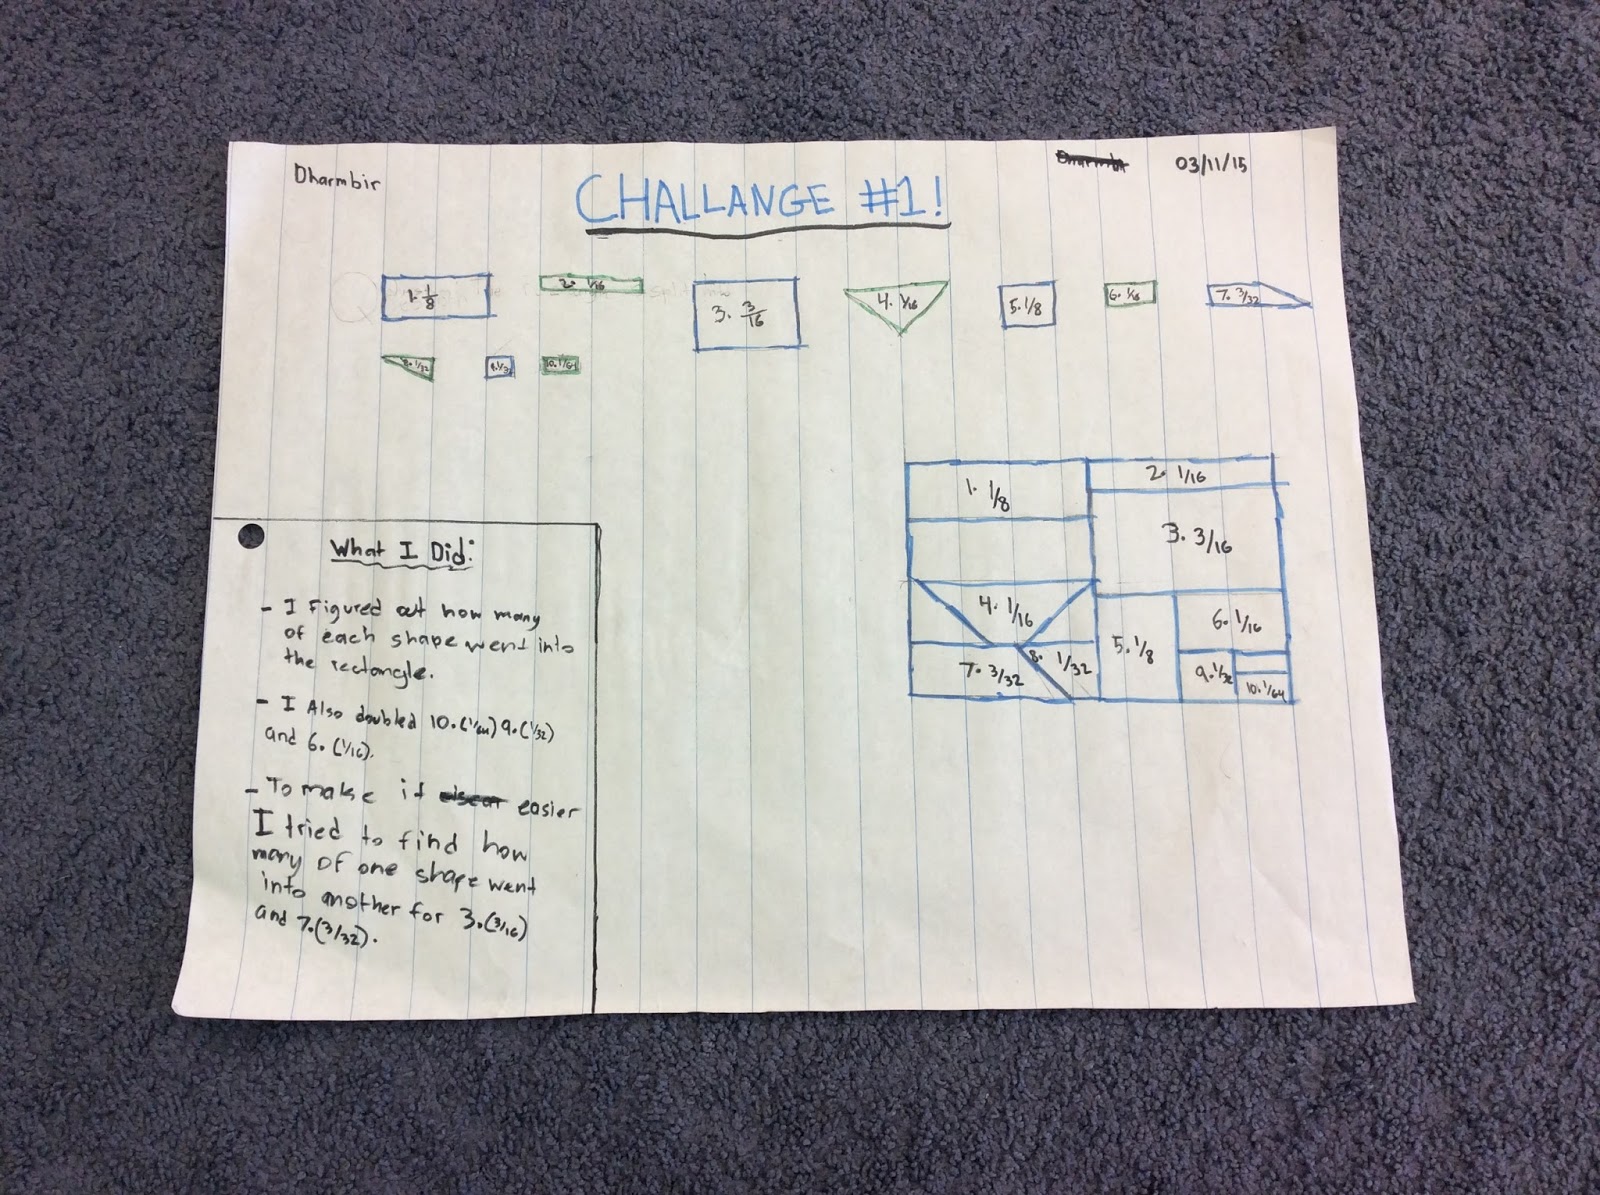 Dharmbir
03/11/15
CHALLANGE #1!
1. 1/8
2. 1/16
3. 3/16
4. 1/16
5. 1/8
6. 1/16
7. 3/32
8. 1/32
9. 1/32
10. 1/64
1. 1/8
2. 1/16
3. 3/16
4. 1/16
5. 1/8
6. 1/16
7. 3/32
8. 1/32
9. 1/32
10. 1/64
What I Did:
- I Figured out how many
of each shape went into
the rectangle.
- I Also doubled 10. (1/64) 9. (1/32)
and 6. (1/16).
- To make it easier
I tried to find how
many of one shape went
into another for 3. (3/16)
and 7. (3/32).